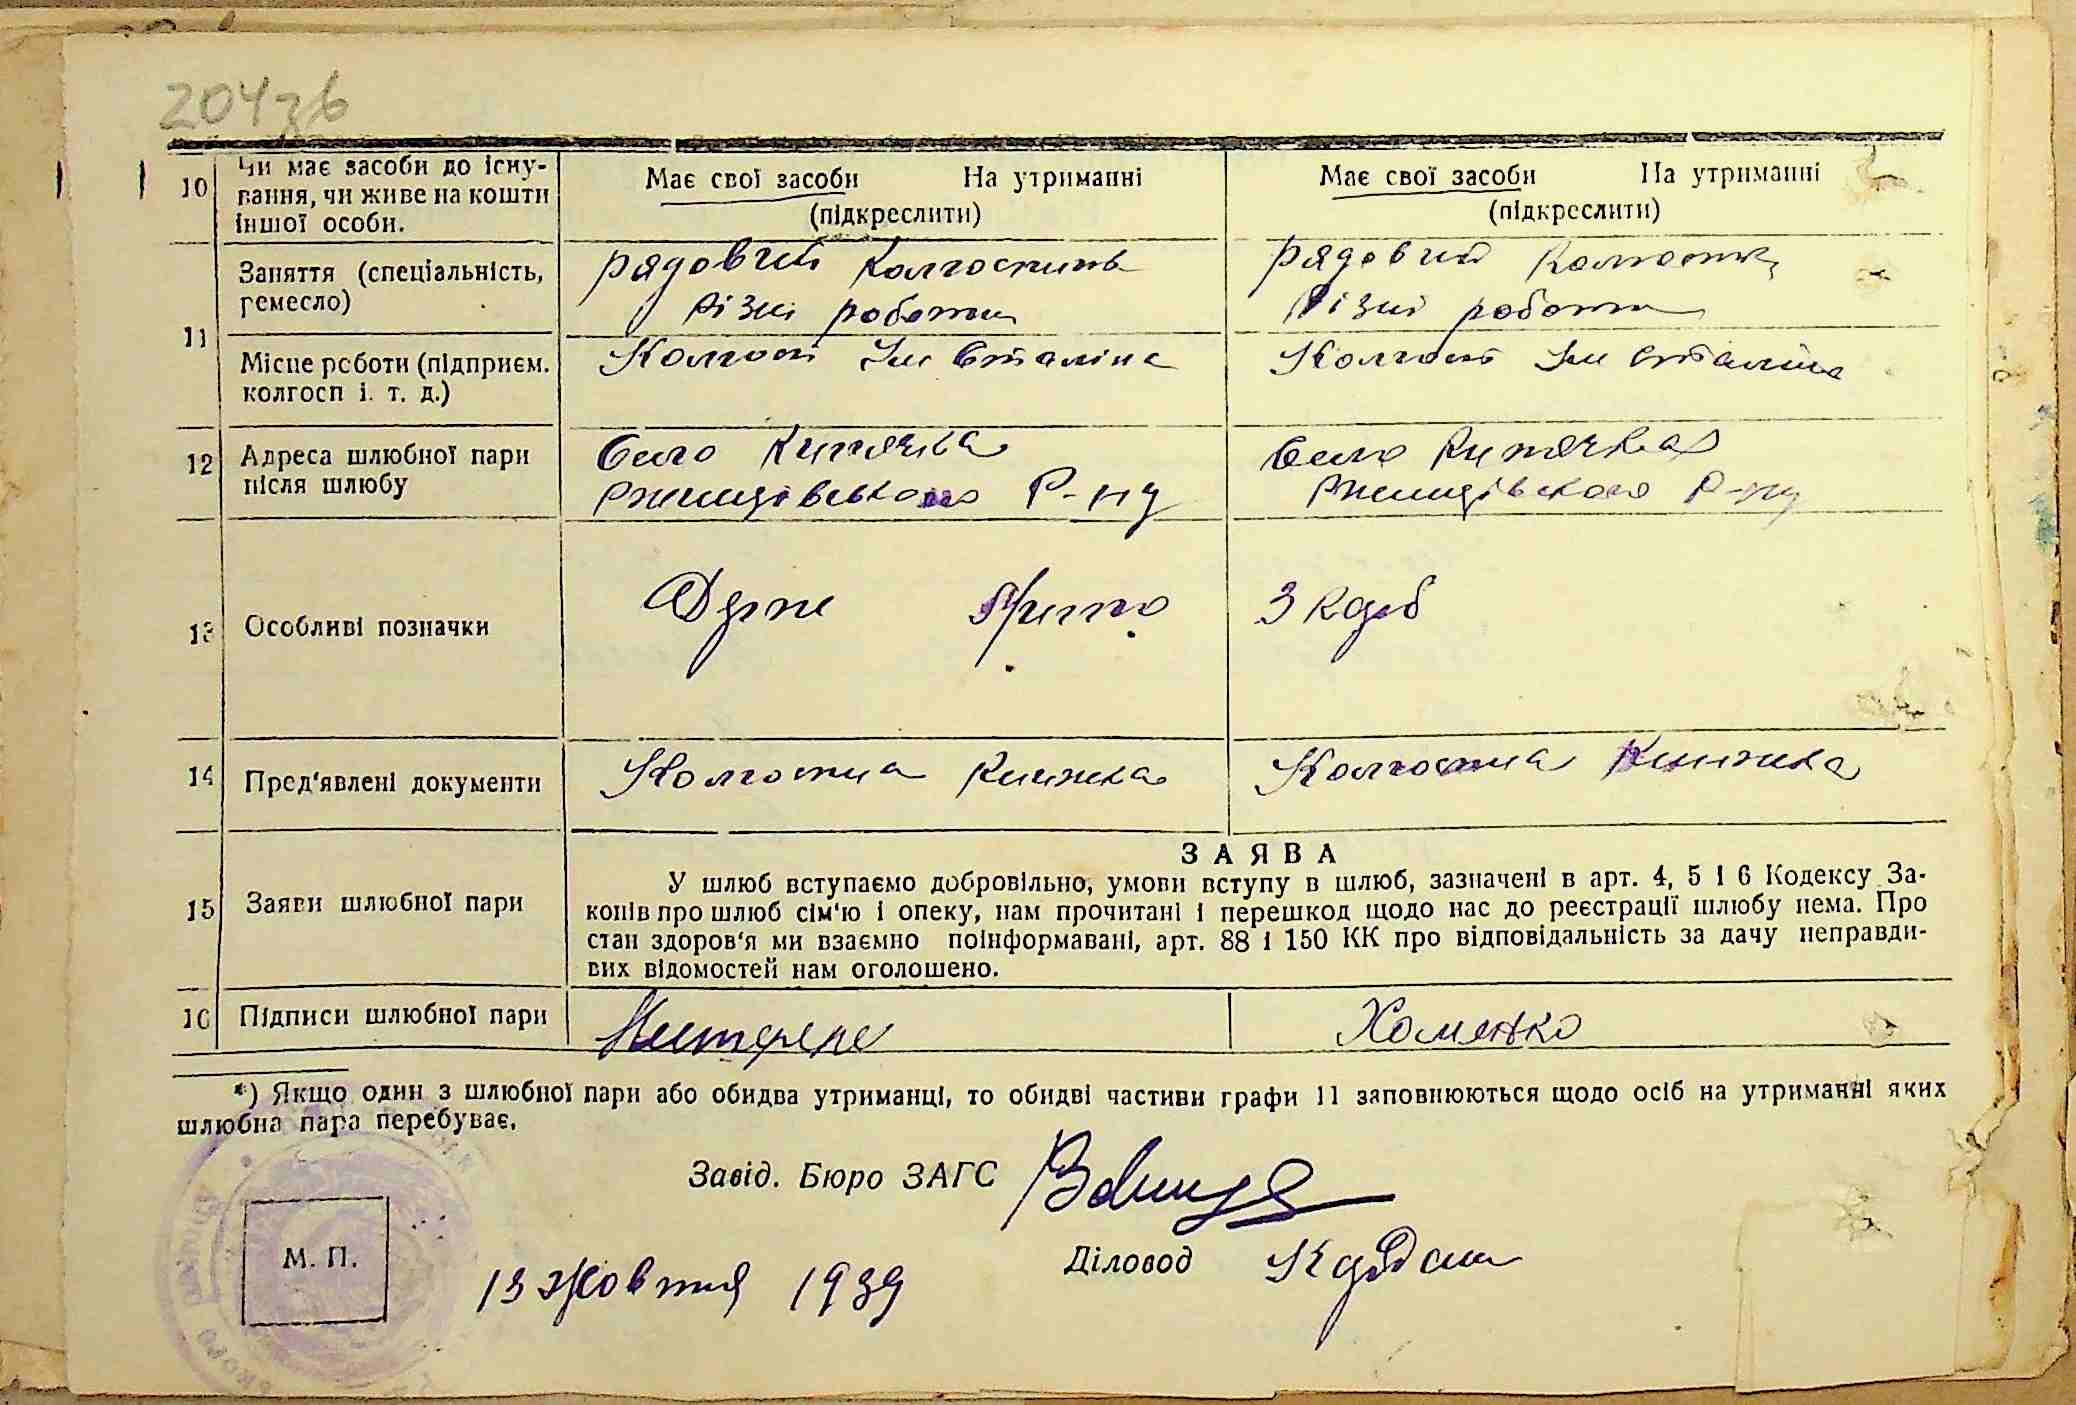 204зв
10 Чи має засоби до існу-
вання, чи живе на кошти
іншої особи.
Має свої засоби На утриманні
(підкреслити)
Має свої засоби На утриманні
(підкреслити)
11 Заняття (спеціальність,
ремесло)
рядовий Колгоспник
Різні роботи
рядовий
Різні роботи
Місце роботи (підприєм.
колгосп і. т. д.)
Колгосп Ім Сталіна
Колгосп Ім Сталіна
12 Адреса шлюбної пари
після шлюбу
Село Кипячка
Ржищівського Р-ну
Село Кипячка
Ржищівського Р-ну
13 Особливі позначки
14 Пред'явлені документи
Колгоспна Книжка
Колгоспна Книжка
15 Заяви шлюбної пари
ЗАЯВА
У шлюб вступаємо добровільно, умови вступу в шлюб, зазначені в арт. 4, 5 і 6 Кодексу За-
конів про шлюб сім'ю і опеку, нам прочитані і перешкод щодо нас до реєстрації шлюбу нема. Про
стан здоров'я ми взаємно поінформавані, арт. 88 і 150 КК про відповідальність за дачу неправди-
вих відомостей нам оголошено.
16 Підписи шлюбної пари
Хоменко
*) Якщо один з шлюбної пари або обидва утриманці, то обидві частиви графи 11 заповнюються щодо осіб на утриманні яких
шлюбна пара перебуває.
Завід. Бюро ЗАГС
М. П.
Діловод
13 Жовтня 1939